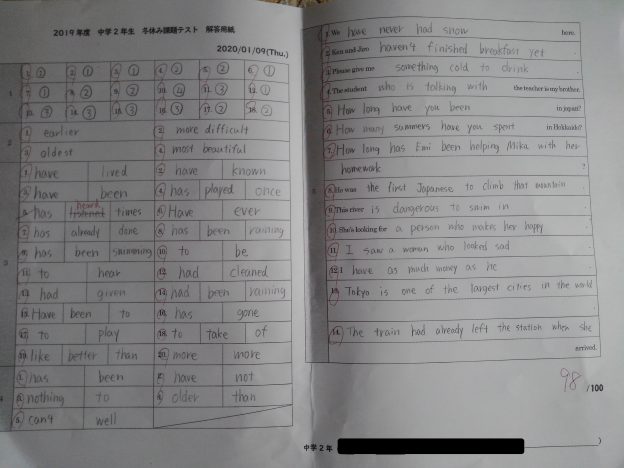 2019年度 中学2年生 冬休み課題テスト 解答用紙
2020/01/09(Thu.)
1
1. ① 2. ① 3. ① 4. ② 5. ② 6. ①
7. ① 8. ② 9. ② 10. ④ 11. ③ 12. ①
13. ③ 14. ③ 15. ③ 16. ③ 17. ② 18. ②
2
1. earlier 2. more difficult
3. oldest 4. most beautiful
3
1. have lived 2. have known
3. have been 4. has played once
5. has heard times 6. Have ever
7. has already done 8. has been raining
9. has been swimming 10. to be
11. to hear 12. had cleaned
13. had given 14. had been raining
15. Have been to 16. has gone
17. to play 18. to take of
19. like better than 20. more more
4
1. has been 2. have not
3. nothing to 4. older than
5. can't well
5
1. We have never had snow here.
2. Ken and Jim haven't finished breakfast yet.
3. Please give me something cold to drink.
4. The student who is talking with the teacher is my brother.
5. How long have you been in japan?
6. How many summers have you spent in Hokkaido?
7. How long has Emi been helping Mika with her
homework ?
8. He was the first Japanese to climb that mountain.
9. This river is dangerous to swim in.
10. She's looking for a person who makes her happy.
11. I saw a woman who looked sad.
12. I have as much money as he.
13. Tokyo is one of the largest cities in the world
.
14. The train had already left the station when she
arrived.
98/100
中学2年 )